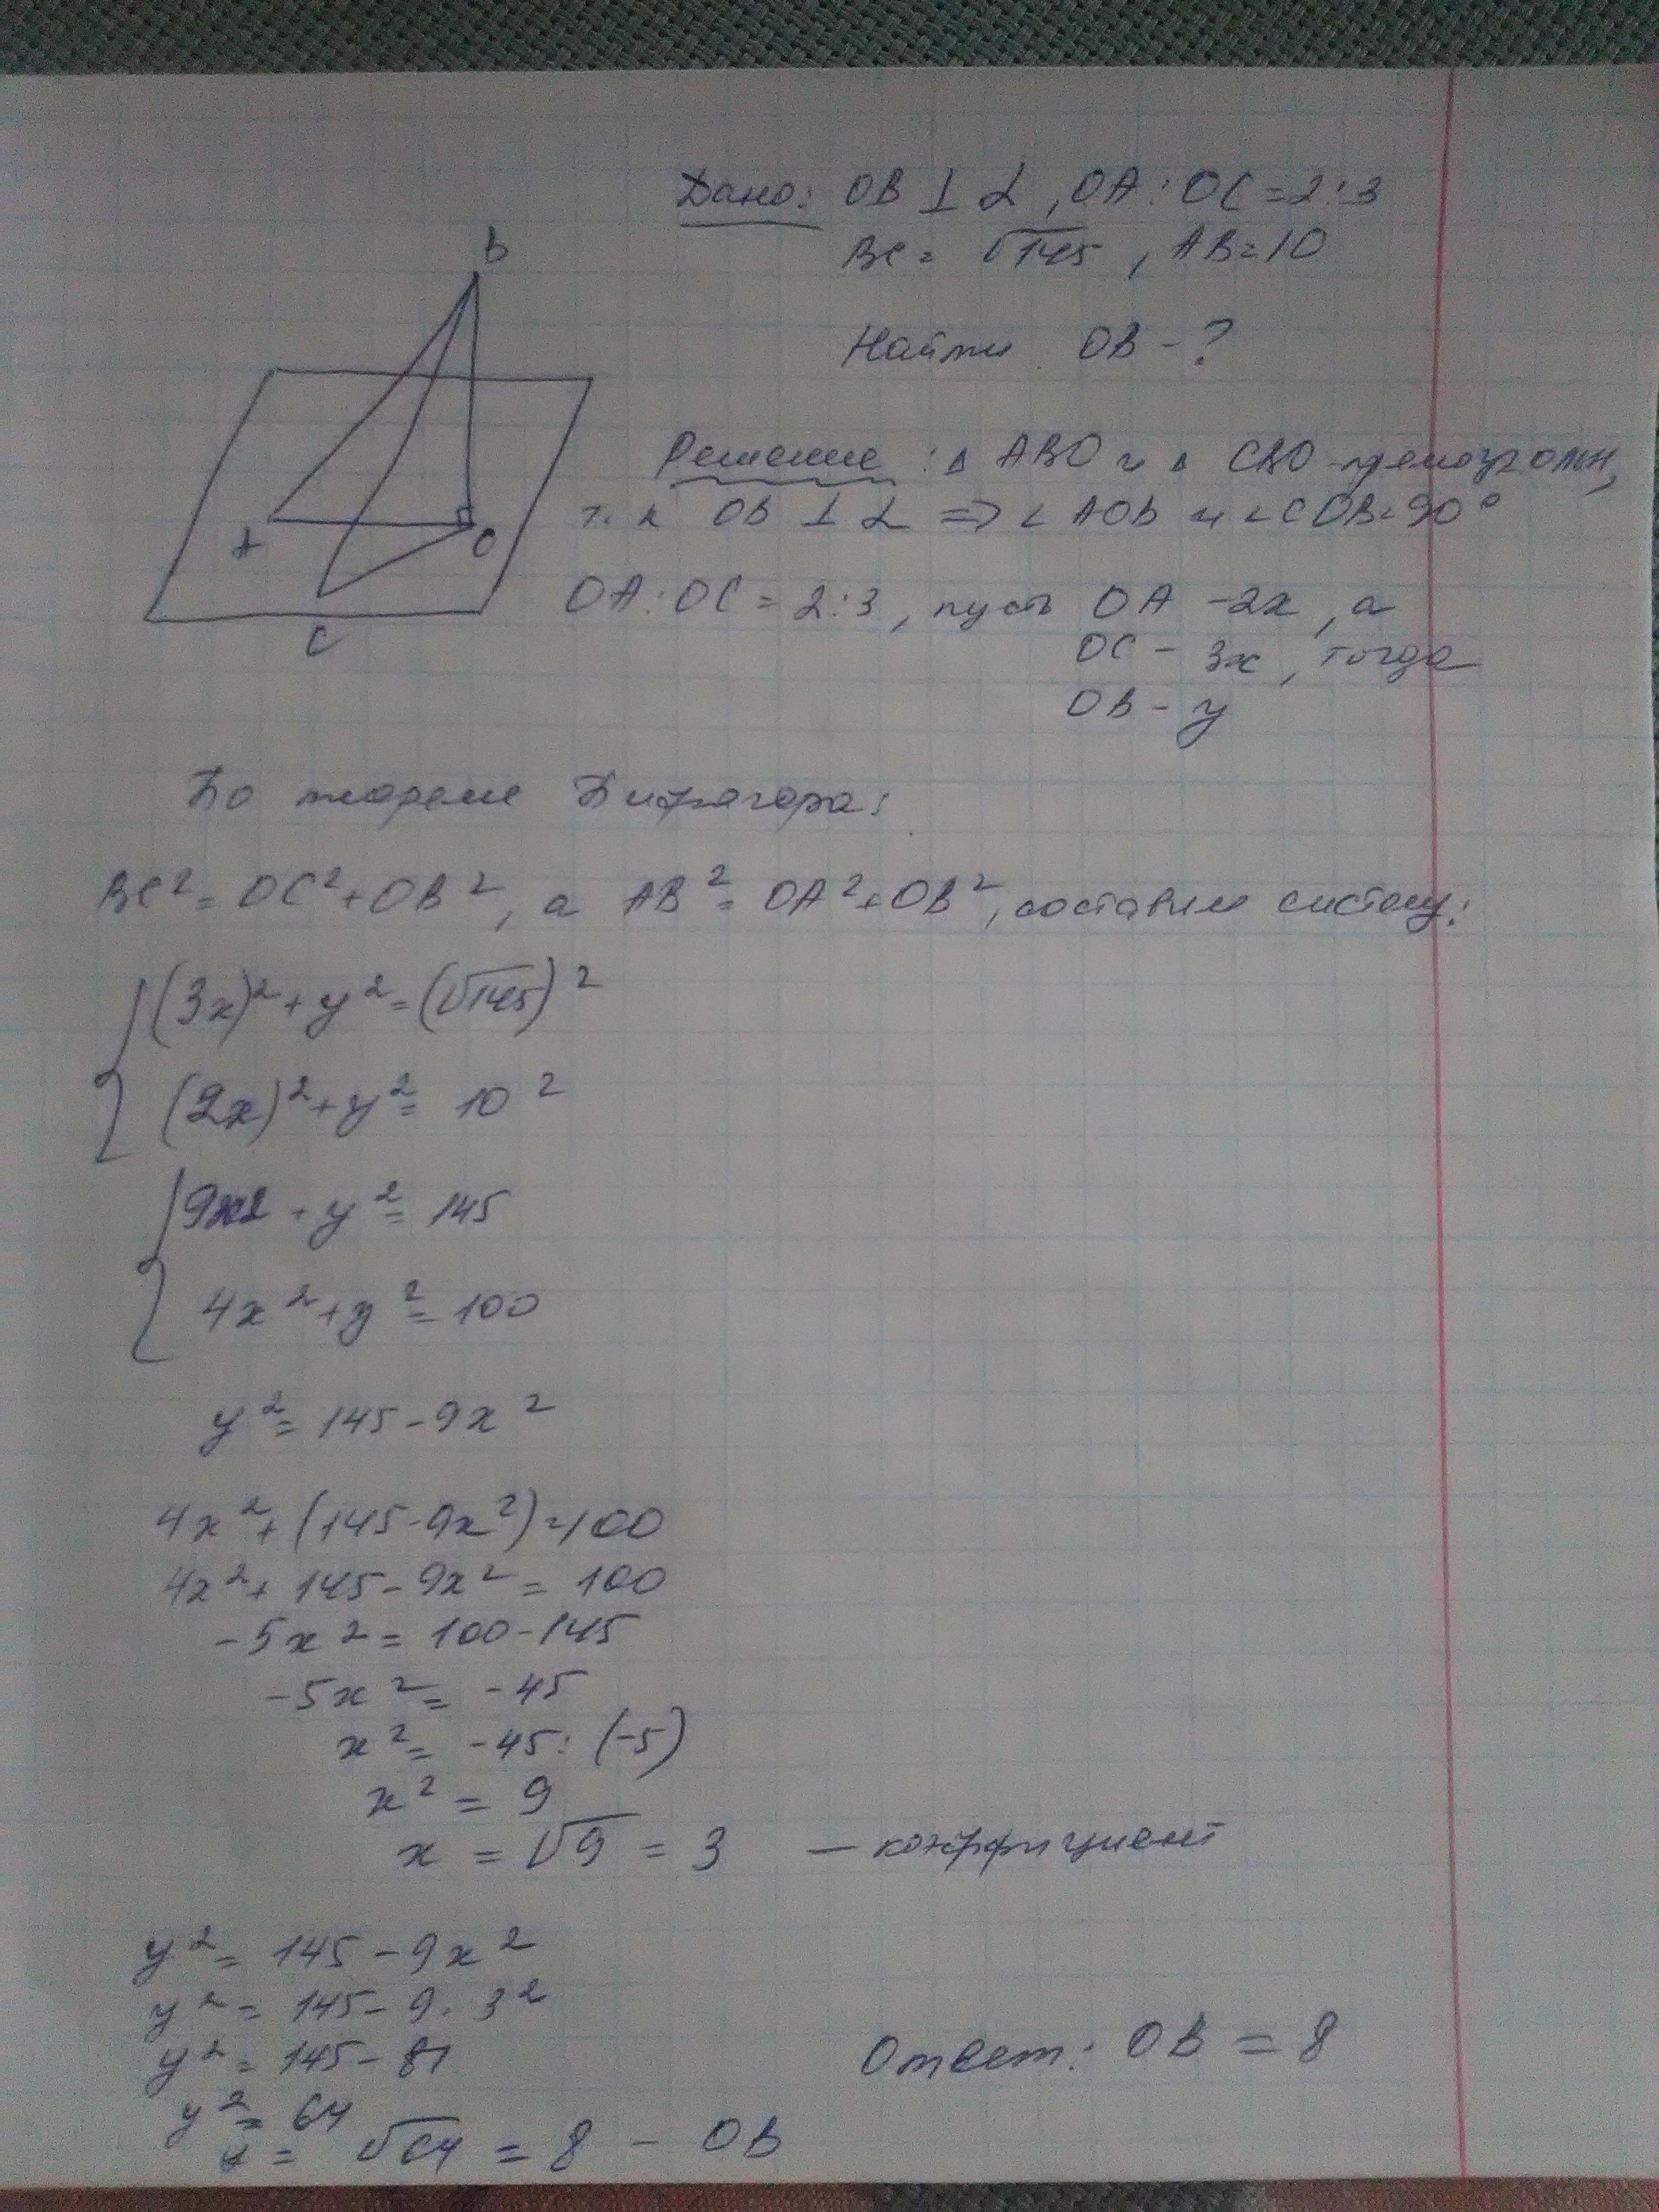 Дано: OB ⊥ α, OA : OC = 2:3
BC = √145, AB = 10
Найти OB - ?
B
A
O
C
Решение: Δ ABO и Δ CBO - прямоугольн,
т.к OB ⊥ α => ∠ AOB и ∠ COB = 90°
OA : OC = 2:3, пусть OA - 2x, а
OC - 3x, тогда
OB - y
По теореме Пифагора:
BC² = OC² + OB², а AB² = OA² + OB², составим систему:
(3x)² + y² = (√145)²
(2x)² + y² = 10²
9x² + y² = 145
4x² + y² = 100
y² = 145 - 9x²
4x² + (145 - 9x²) = 100
4x² + 145 - 9x² = 100
-5x² = 100 - 145
-5x² = -45
x² = -45 : (-5)
x² = 9
x = √9 = 3 — коэффициент
y² = 145 - 9x²
y² = 145 - 9 · 3²
y² = 145 - 81
y² = 64
y = √64 = 8 - OB
Ответ: OB = 8